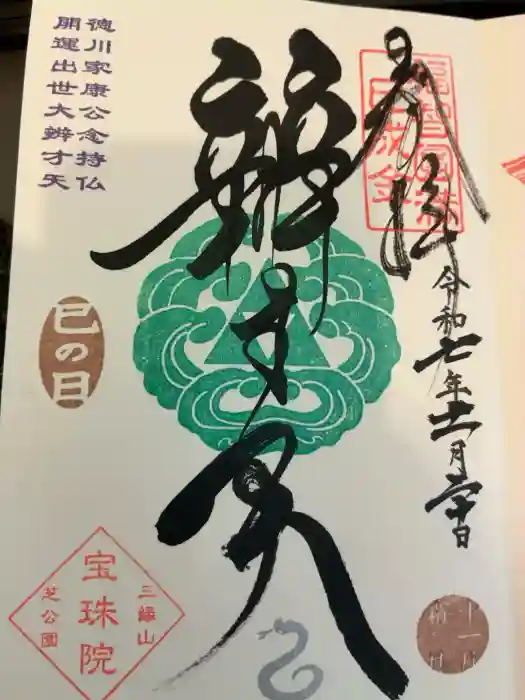 奉拝
巳成金
令和七年十一月二十日
辨才天
徳川家康公念持仏
開運出世大辨才天
巳の日
三縁山
宝珠院
芝公園